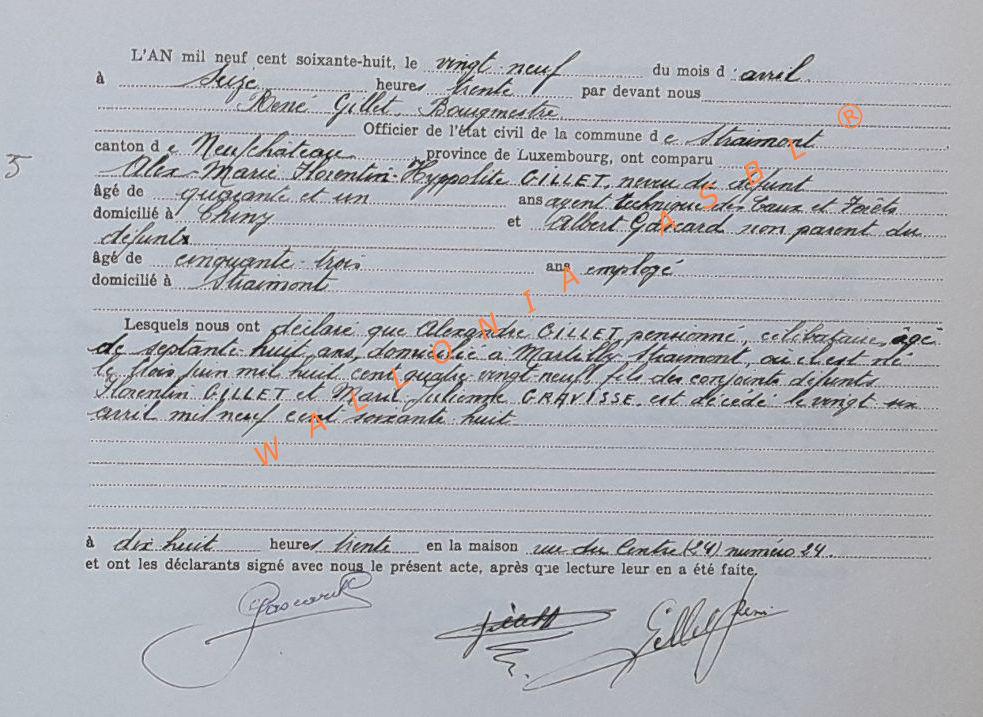 L'AN mil neuf cent soixante-huit, le vingt neuf du mois d'avril
à seize heures trente par devant nous
René Gillet, Bourgmestre
Officier de l'état civil de la commune de Straimont
canton de Neufchâteau province de Luxembourg, ont comparu
5
Alex-Marie Florentin-Hyppolite GILLET, neveu du défunt
âgé de quarante et un ans agent technique des Eaux et Forêts
domicilié à Chiny et Albert Gascard non parent du
défunt
âgé de cinquante-trois ans employé
domicilié à Straimont
Lesquels nous ont déclaré que Alexandre GILLET, pensionné, célibataire, âgé
de septante-huit ans, domicilié à Martilly-Straimont, où il est né
le trois juin mil huit cent quatre-vingt-neuf, fils des conjoints défunts
Florentin GILLET et Marie Julienne GRAVISSE, est décédé le vingt six
avril mil neuf cent soixante huit
à dix huit heures trente en la maison rue du Centre (24) numéro 24.
et ont les déclarants signé avec nous le présent acte, après que lecture leur en a été faite.
Gascard Gillet Gillet René
WALLONIA ASBL ®